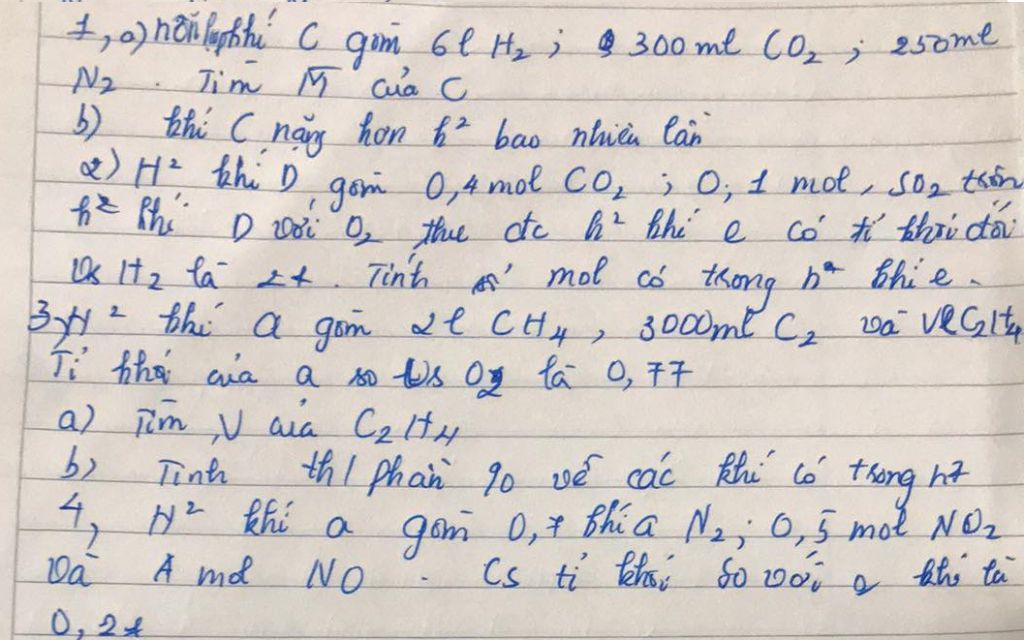 1, a) hỗn hợp khí C gồm 6l H2 ; 300ml CO2 ; 250ml
N2 . Tìm M̅ của C
b) khí C nặng hơn h² bao nhiêu lần
2) H² khí D gồm 0,4 mol CO2 ; 0,1 mol, SO2 trộn
h² khí D với O2 thu đc h² khí e có tỉ khối đối
vs H2 là 21 . Tính số mol có trong h² khí e.
3, H² khí a gồm 2l CH4, 3000ml C2 và Vl C2H4
Tỉ khối của a so vs O2 là 0,77
a) Tìm V của C2H4
b) Tính th/phần % về các khí có trong h²
4, H² khí a gồm 0, khí a N2 ; 0,5 mol NO2
và A mol NO . Cs tỉ khối so với khí là